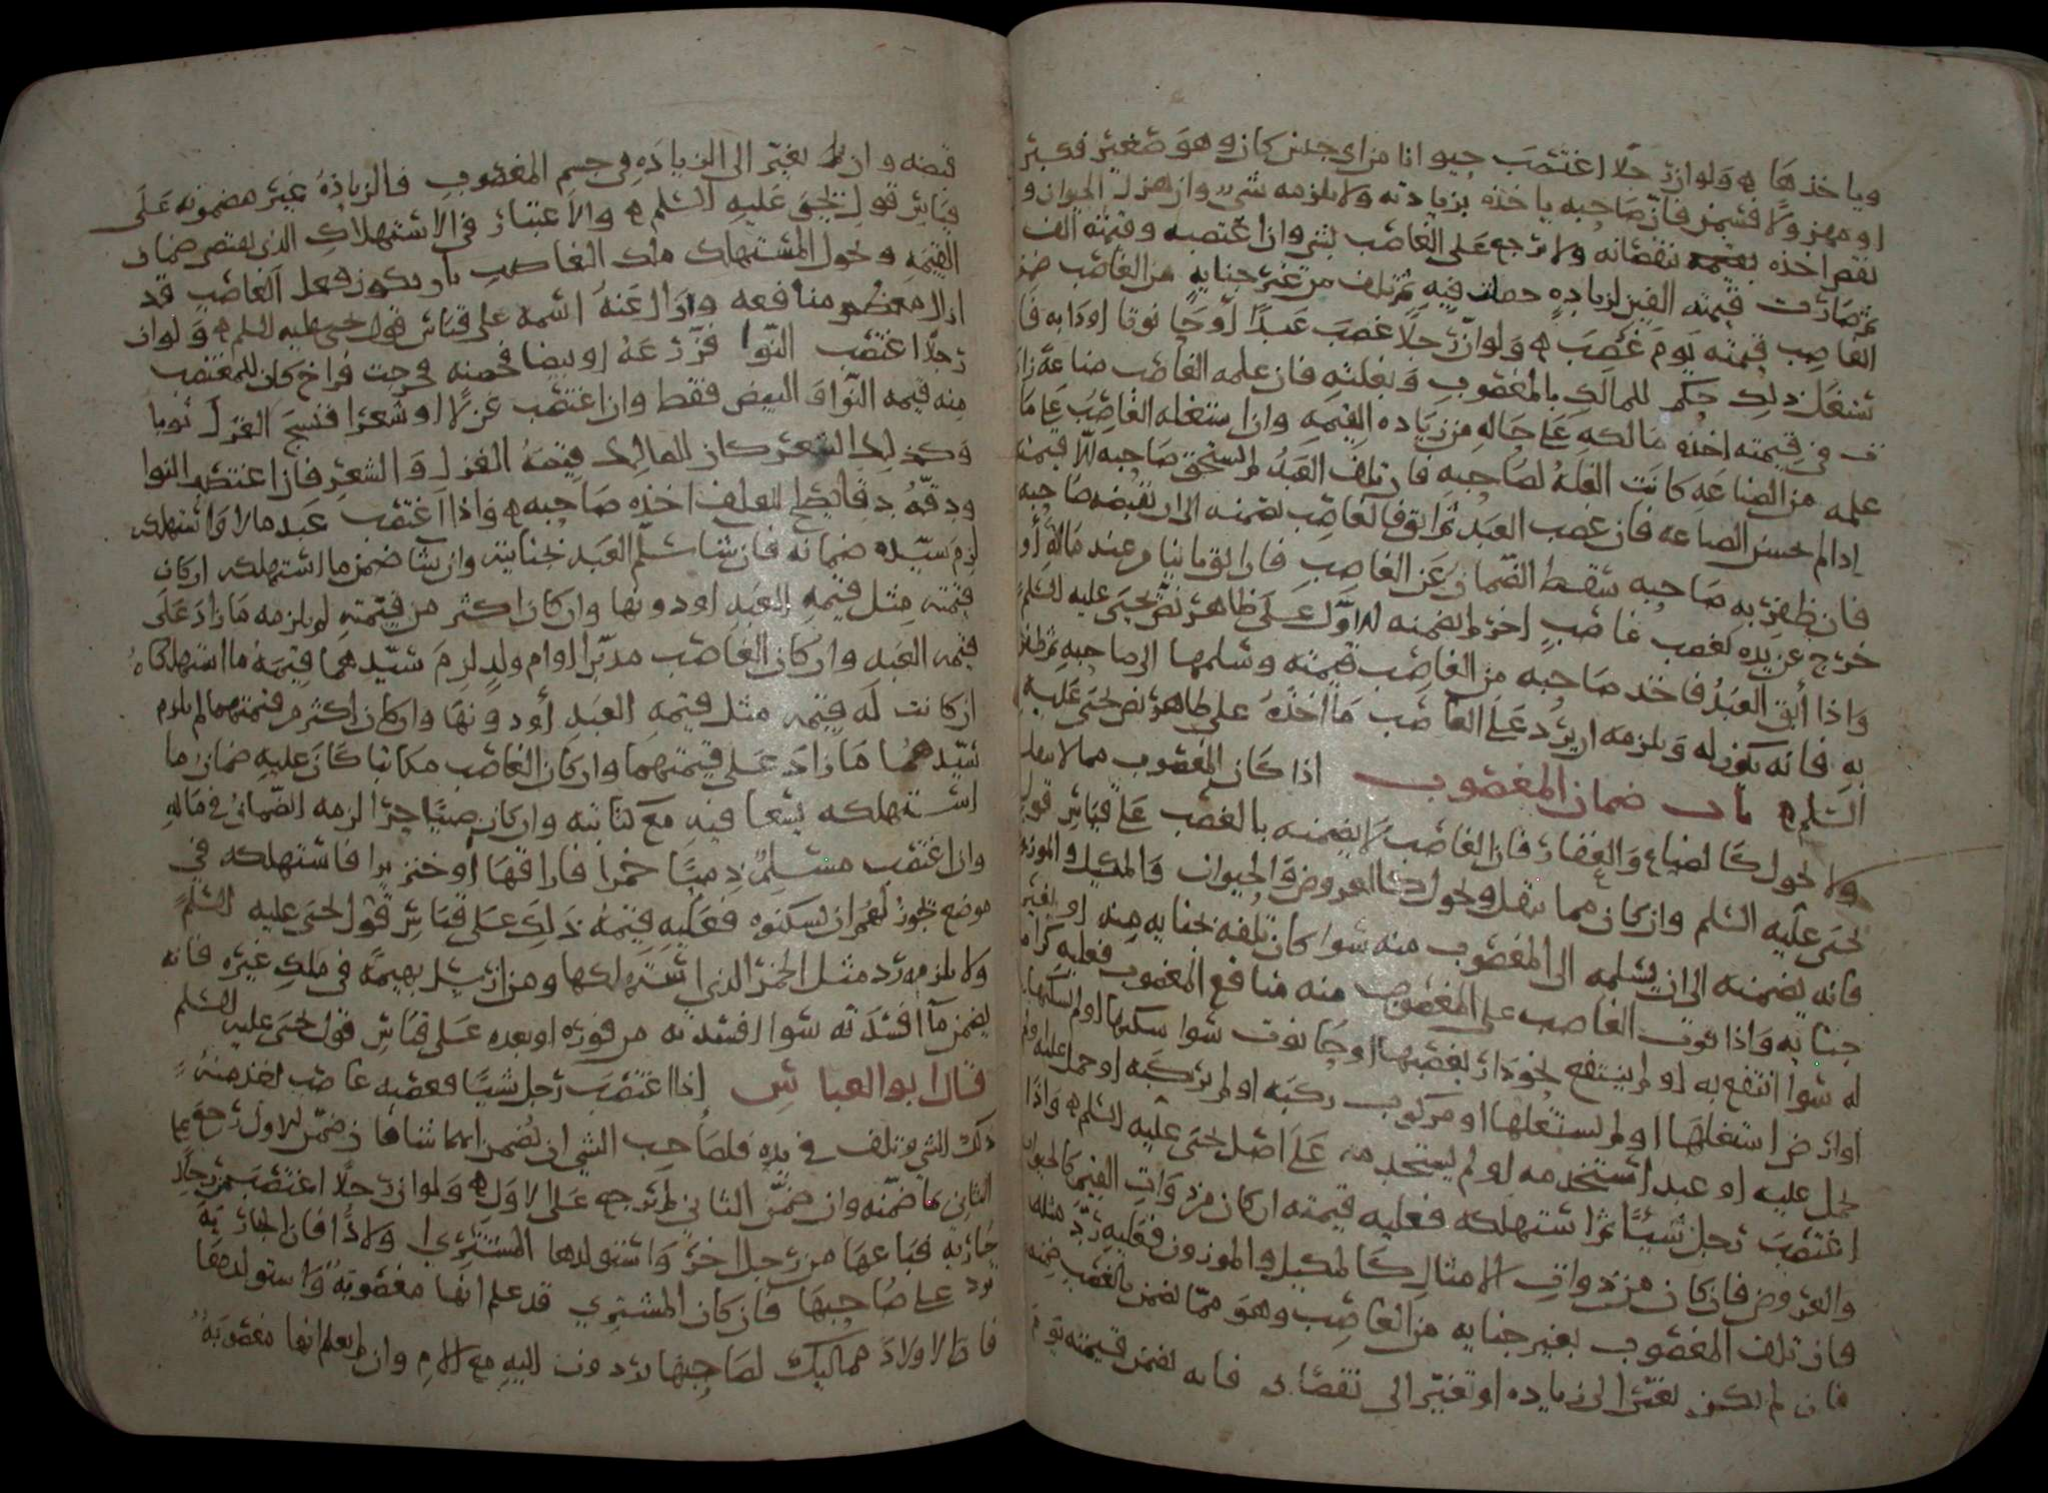 وياخذها ه ولو ان رجلا اغتصب حيوانا من اي جنس كان وهو صغير فكبر
او مهزولا فسمن فان صاحبه ياخذه بزيادته ولا يلزمه شيء وان هزل الحيوان و
نقص اخذه بنقصانه ولا يرجع على الغاصب بشي وان اغتصبه وقيمته الف
ثم صارت قيمته الفين لزيادة حصلت فيه ثم تلف من غير جناية من الغاصب ضمن
الغاصب قيمته يوم غصب ه ولو ان رجلا غصب عبدا او حانوتا او دابة فا
ستغل ذلك حكم للمالك بالمغصوب وبغلته فان علمه الغاصب صناعة زاد
ت في قيمته اخذه مالكه على حاله من زياده القيمه وان استغله الغاصب على ما
علمه من الصناعه كانت الغلة لصاحبه فان تلف العبد لم يستحق صاحبه الا قيمته
اذا لم يحسن الصناعه فان غصب العبد ثم ابق فالغاصب يضمنه الى ان يقبضه صاحبه
فان ظفر به صاحبه سقط الضمان عن الغاصب فان ابق ثانيا من عند مالكه او
خرج عن يده لغصب غاصب اخر لم يضمنه الاول على ظاهر نص يحيى عليه السلم
واذا أبق العبد فاخذ صاحبه من الغاصب قيمته وسلمها الى صاحبه ثم ظفر
به فانه يكون له ويلزمه ان يرد على الغاصب ما اخذه على ظاهر نص يحيى عليه
السلم ه باب ضمان المغصوب اذا كان المغصوب مما لا ينقل
ولا يحول كالضياع والعقار فان الغاصب لا يضمنه بالغصب على قياس قول
يحيى عليه السلم وان كان مما ينقل ويحول كالعروض والحيوان والمكيل والموزون
فانه يضمنه الى ان يسلمه الى المغصوب منه سوا كان تلفه بجنايه منه او بغير
جنايه واذا فوت الغاصب على المغصوب منه منافع المغصوب فعليه كرا م
له سوا انتفع به او لم ينتفع نحو دار يغصبها او حانوت سوا سكنها او لم يسكنها
او ارض استغلها او لم يستغلها او مركوب ركبه او لم يركبه او حمل عليه او لم
يحمل عليه او عبد استخدمه او لم يستخدمه على اصل يحيى عليه السلم ه واذا
اغتصب رجل شيئا ثم استهلكه فعليه قيمته ان كان من ذوات القيم كالحيوان
والعروض فان كان من ذوات الامثال كالمكيل والموزون فعليه رد مثله
وان تلف المغصوب بغير جنايه من الغاصب وهو مما يضمن بالغصب ضمنه
فان لم يكن تغير الى زياده او تغير الى نقصان فانه يضمن قيمته يوم
قبضه وان تغير الى الزياده في جسم المغصوب فالزياده غير مضمونه على
قياس قول يحيى عليه السلم ه والاعتبار في الاستهلاك الذي يقتضي ضمان
القيمه ودخول المستهلك ملك الغاصب بان يكون فعل الغاصب قد
ازال معظم منافعه وازال عنه اسمه على قياس قول يحيى عليه السلم ه ولو ان
رجلا اغتصب النوا فزرعه او بيضا فحضنه فخرجت فراخ كان للمغتصب
منه قيمه النوا والبيض فقط وان اغتصب غزلا او شعرا فنسج الغزل ثوبا
وكذلك الشعر كان للمالك قيمة الغزل والشعر فان اغتصب النوا
ودقه دقا يصلح للعلف اخذه صاحبه ه واذا اغتصب عبد مالا واستهلكه
لزم سيده ضمانه فان شا سلم العبد بجنايته وان شا ضمن ما استهلكه ان كان
قيمته مثل قيمه العبد او دونها وان كان اكثر من قيمته لم يلزمه ما زاد على
قيمه العبد وان كان الغاصب مدبرا او ام ولد لزم سيدهما قيمة ما استهلكاه
ان كانت له قيمه مثل قيمه العبد أو دونها وان كان اكثر من قيمتهما لم يلزم
سيدهما ما زاد على قيمتهما وان كان الغاصب مكاتبا كان عليه ضمان ما
استهلكه يسعا فيه مع كتابته وان كان صبيا حرا لزمه الضمان في ماله
وان اغتصب مسلم ذميا خمرا فاراقها او خنزيرا فاستهلكه في
موضع يجوز لهم ان يسكنوه فعليه قيمة ذلك على قياس قول يحيى عليه السلم
ولا يلزمه رد مثل الخمر الذي استهلكها ومن ارسل بهيمة في ملك غيره فانه
يضمن ما افسدته سوا افسدته من فوره او بعده على قياس قول يحيى عليه السلم
قال ابو العباس اذا اغتصب رجل شيئا فغصبه غاصب اخر منه
ذلك الشي وتلف في يده فلصاحب الشي ان يضمن ايهما شا فان ضمن الاول رجع بما
الثاني ما ضمنه وان ضمن الثاني لم يرجع على الاول ه ولو ان رجلا اغتصب من رجل
جاريه فباعها من رجل اخر واستولدها المشتري اولادا فان الجاريه
ترد على صاحبها فان كان المشتري قد علم انها مغصوبة واستولدها
فان الاولاد مماليك لصاحبها يردون اليه مع الام وان لم يعلم انها مغصوبة